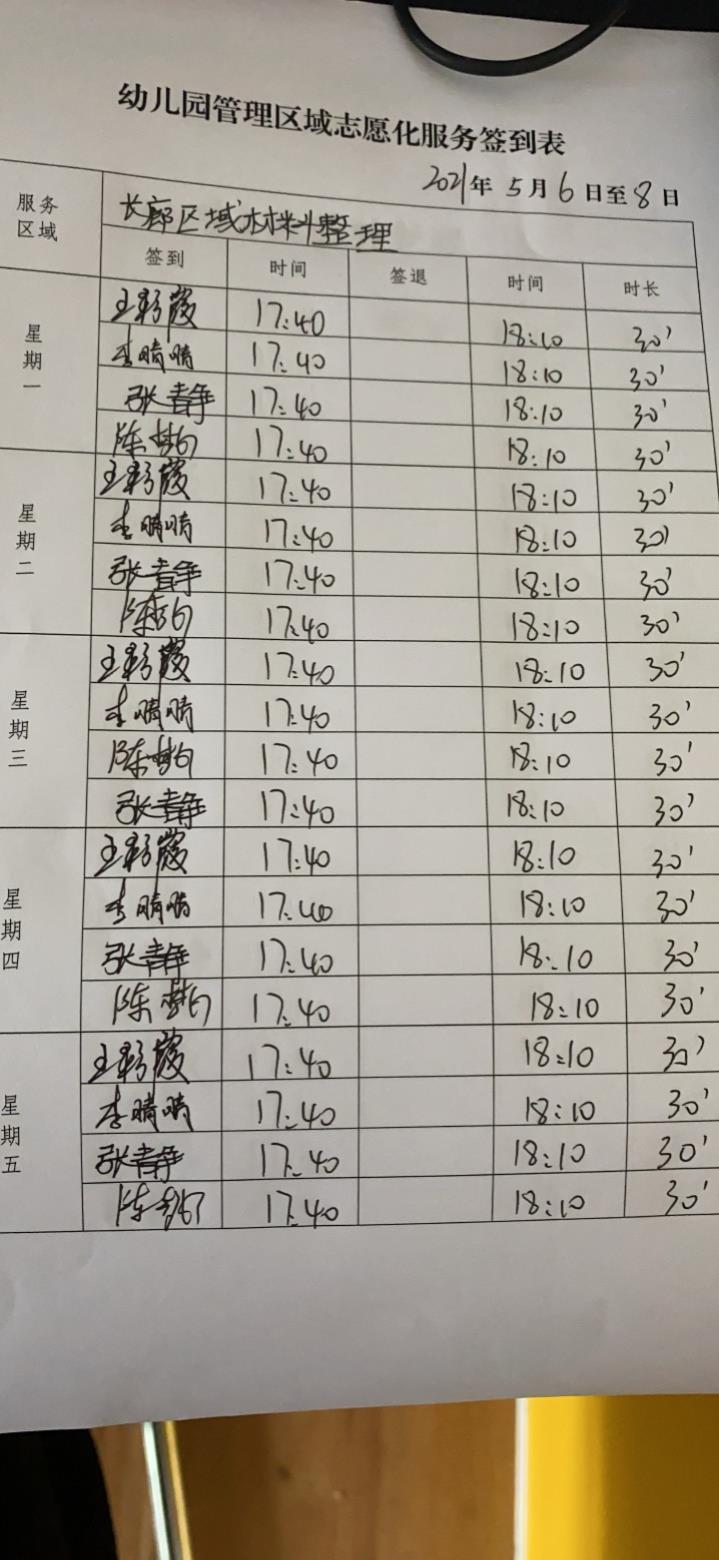 幼儿园管理区域志愿化服务签到表
2021年 5月 6日至 8日
服务区域 长廊区域材料整理
签到 时间 签退 时间 时长
星期一
王彩霞 17:40 18:10 30'
李晴晴 17:40 18:10 30'
张静 17:40 18:10 30'
陈 17:40 18:10 30'
星期二
王彩霞 17:40 18:10 30'
李晴晴 17:40 18:10 30'
张静 17:40 18:10 30'
陈 17:40 18:10 30'
星期三
王彩霞 17:40 18:10 30'
李晴晴 17:40 18:10 30'
陈 17:40 18:10 30'
张静 17:40 18:10 30'
星期四
王彩霞 17:40 18:10 30'
李晴晴 17:40 18:10 30'
张静 17:40 18:10 30'
陈 17:40 18:10 30'
星期五
王彩霞 17:40 18:10 30'
李晴晴 17:40 18:10 30'
张静 17:40 18:10 30'
陈 17:40 18:10 30'